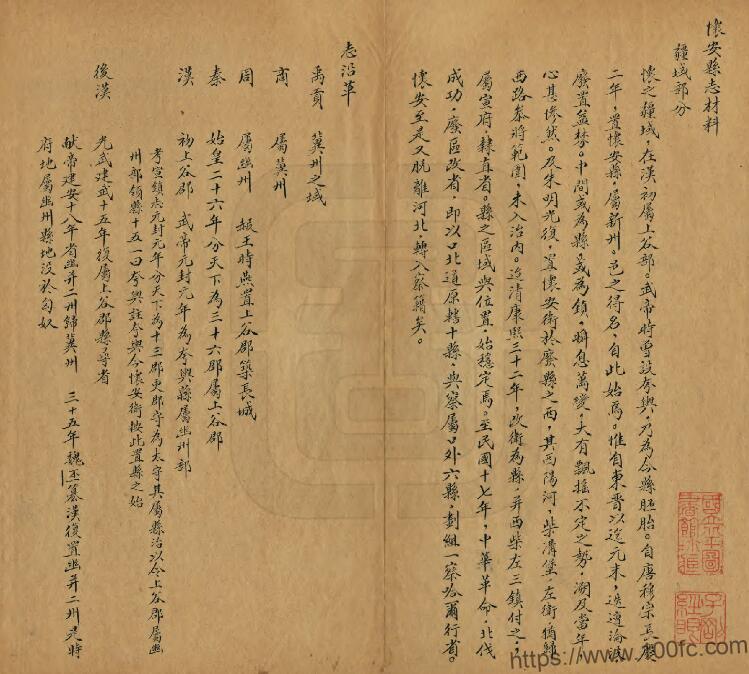 懷安縣志材料
疆域部分
懷之疆域，在漢初屬上谷郡。武帝時曾設夸輿，乃為今縣胚胎。自唐穆宗長慶
二年，置懷安縣，屬新州。邑之得名，自此始焉。惟自東晉以迄元末，迭遭淪浪
廢置益棼。中間或為縣，或為鎮，瞬息萬變，大有飄搖不定之勢，溯及當年，
心甚慘然。及朱明光復，置懷安衛於廢縣之西，其西陽河，柴溝堡，左衛猶歸
西路叅將範圍，未入治內。迨清康熙三十二年，改衛為縣，並西柴左三鎮付之，
屬宣府，隸直省。縣之區域與位置，始穩定焉。至民國十七年，中華革命，北伐
成功，廢區改省，即以口北道原轄十縣，與察屬口外六縣，劃組一察哈爾行省。
懷安至是又脫離河北，轉入察籍矣。
志沿革
禹貢 冀州之域
商 屬冀州
周 屬幽州 赧王時燕置上谷郡築長城
秦 始皇二十六年分天下為三十六郡屬上谷郡
漢 初上谷郡 武帝元封元年為夸輿縣屬幽州部
考宣鎮志元封元年分天下為十三郡更郡守為太守其屬縣治以今上谷郡屬幽
州部領縣十五一曰夸輿註夸輿今懷安衛按此置縣之始
後漢 光武建武十五年復屬上谷郡縣尋省
献帝建安十八年省幽并二州歸冀州 三十五年魏丕篡漢復置幽并二州是時
府地屬幽州縣地沒於匈奴
https://www.h00fc.com